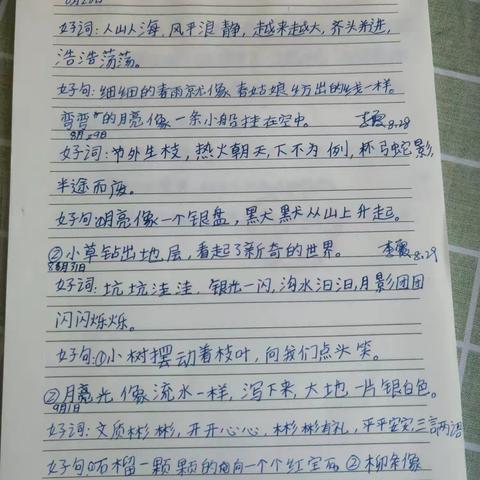 好词:人山人海,风平浪静,越来越大,齐头并进,
浩浩荡荡。
好句:细细的春雨就像春姑娘纺出的线一样。
弯弯的月亮像一条小船挂在空中。 8.28
8月29日
好词:节外生枝,热火朝天,下不为例,杯弓蛇影,
半途而废。
好句:①月亮像一个银盘,默默从山上升起。
②小草钻出地层,看起了新奇的世界。 8.29
8月31日
好词:坑坑洼洼,银光一闪,沟水汩汩,月影团团
闪闪烁烁。
好句:①小树摆动着枝叶,向我们点头笑。
②月亮光像流水一样,泻下来,大地一片银白色。
9月1日
好词:文质彬彬,开开心心,彬彬有礼,平平安安,三言两语
好句:①石榴一颗颗的向一个个红宝石 ②柳条像